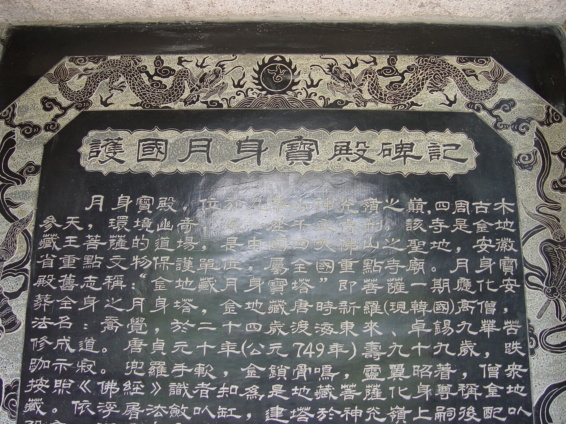 護國月身寶殿碑記
月身寶殿，位嶺之巔，四周古木
參天，環境幽奇，該寺是金地
藏王菩薩的道場，是山之聖地，安徽
省重點文物保護單位，屬全國重點寺廟。月身寶
殿舊志稱：“金地藏月身寶塔”即菩薩一期應化安
葬全身之月身塔，金地藏是新羅（現韓國）高僧，
法名：喬覺，於二十四歲渡海東來，卓錫九華，苦
修成道。唐貞元十年（公元749年）壽九十九歲，趺
跏示寂。兜羅手軟，金鎖骨鳴，靈異昭著，僧眾
按照《佛經》識者知為是地藏菩薩化身尊稱金地
藏。依浮屠法斂以缸，建塔於神光嶺上嗣後配以